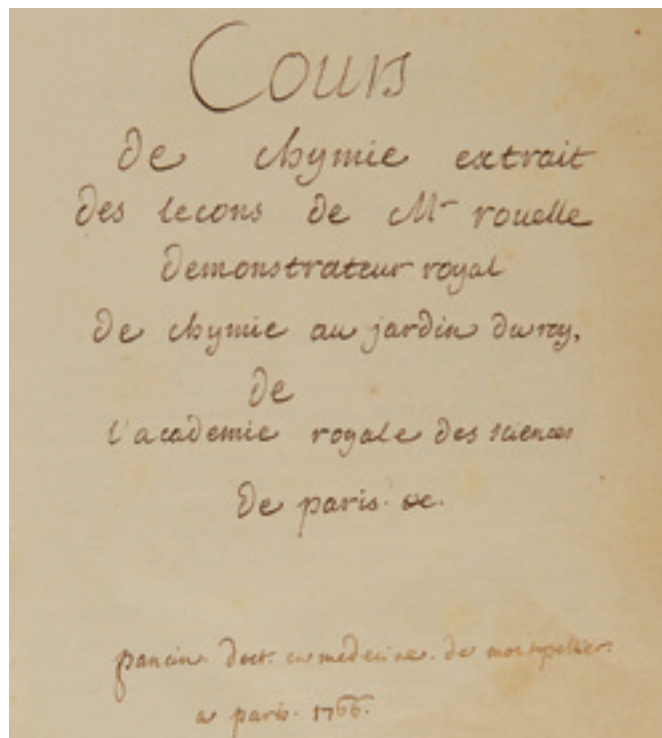 Cours
de chymie extrait
des lecons de Mr rouelle
demonstrateur royal
de chymie au jardin du roy,
de
l'academie royale des sciences
de paris. &c.
pancin doct. en medecine. de montpellier.
a paris. 1766.